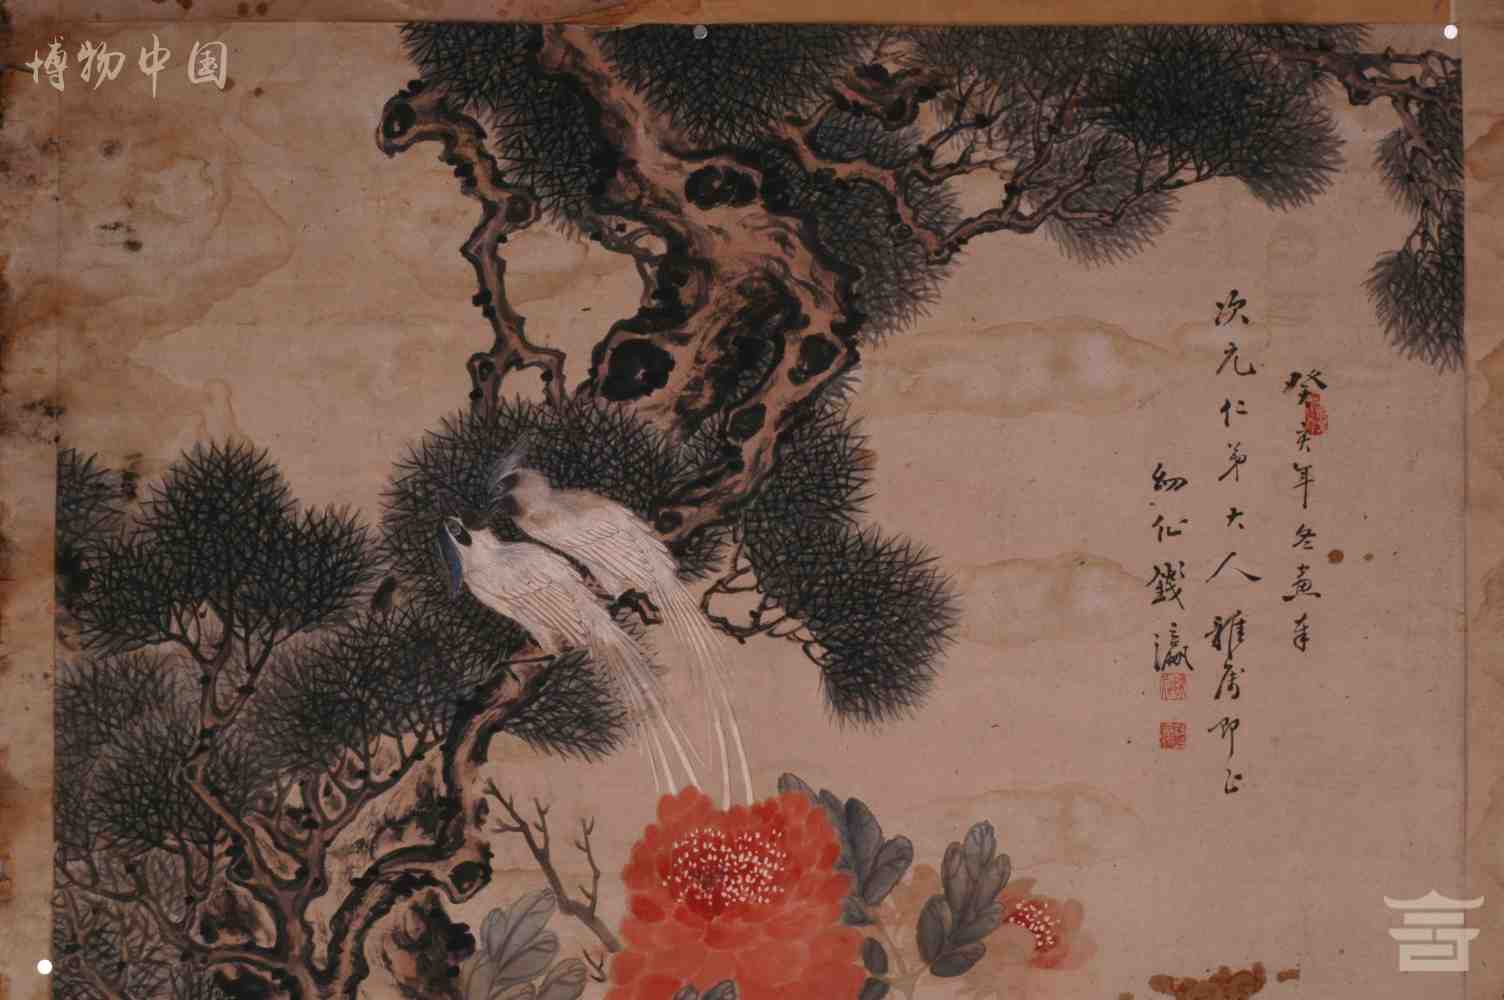 博物中国
癸亥年冬画奉
次元仁弟大人雅属即正
幼仙钱瀛